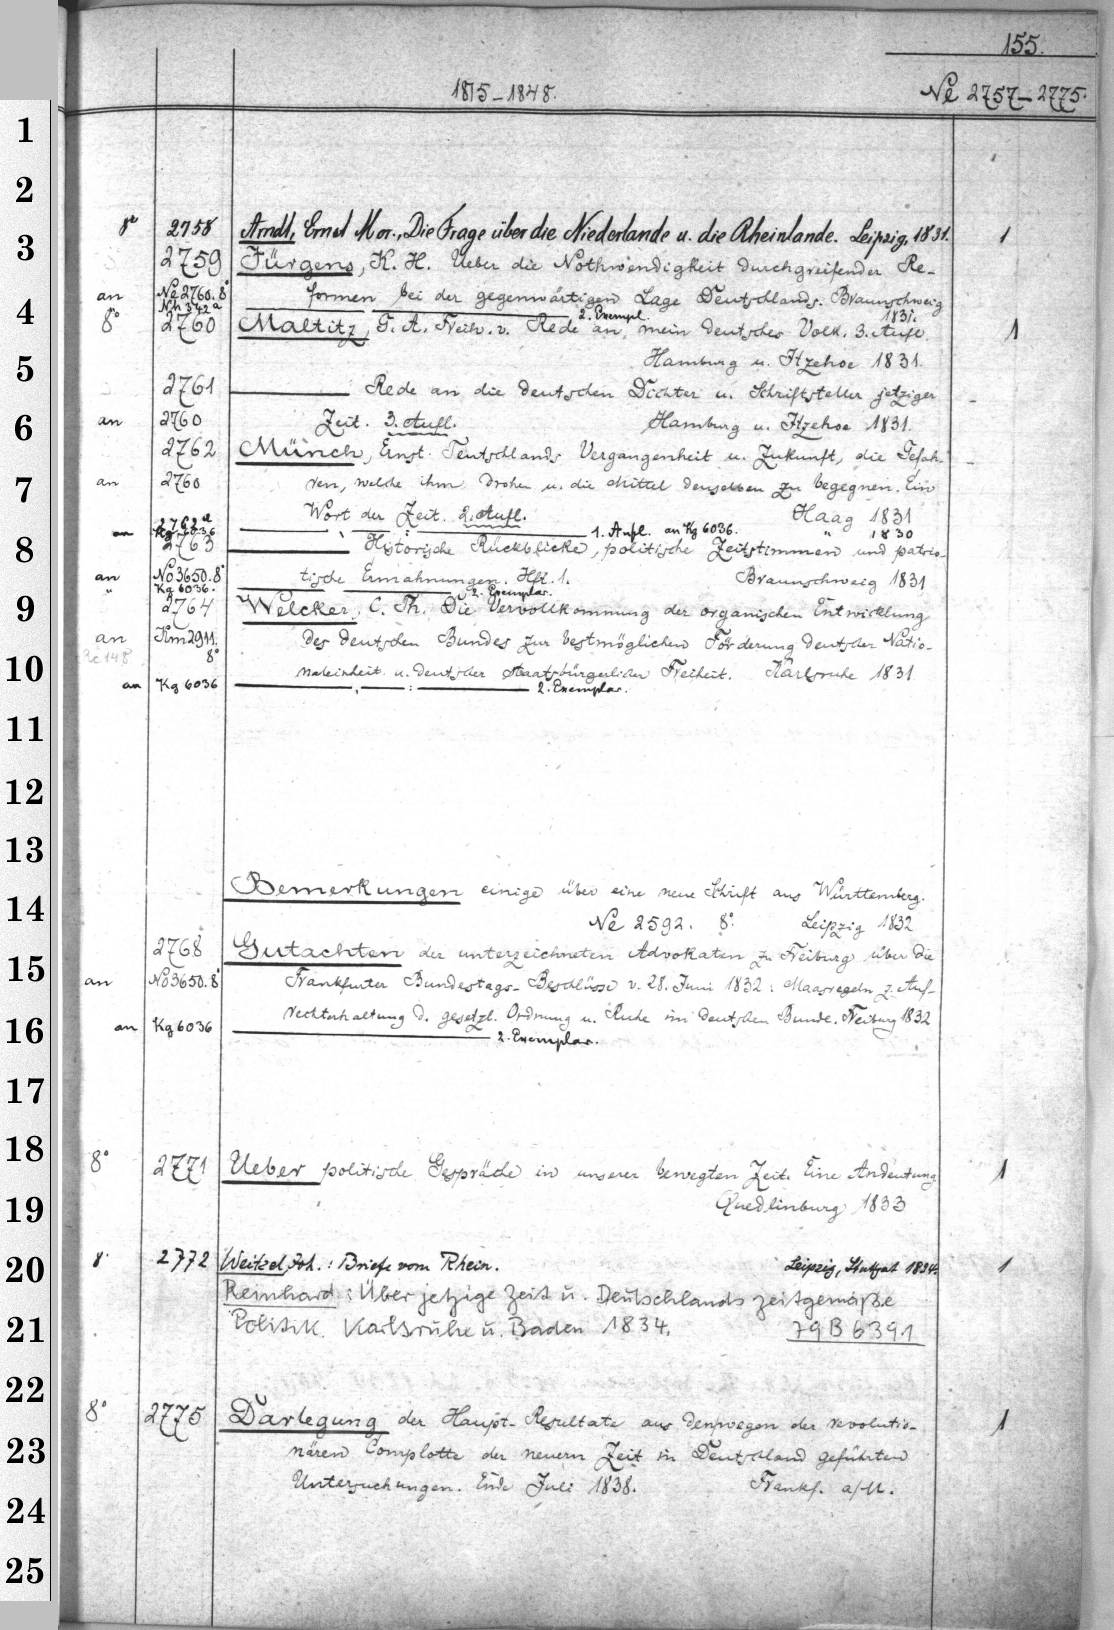 155.
1815-1848. Ne 2757-2775.
1
2
8º 2758 Arndt, Ernst Mor., Die Frage über die Niederlande u. die Rheinlande. Leipzig, 1831. 1
3
2759 Jürgens, K. H. Ueber die Nothwendigkeit durchgreifender Re-
an Ne 2760. 8º formen bei der gegenwärtigen Lage Deutschlands. Braunschweig
4
Nh 342a 2. Exempl. 1831.
8º 2760 Maltitz, G. A. Freih. v. Rede an mein deutsches Volk. 3. Aufl. 1
Hamburg u. Itzehoe 1831.
5
2761 Rede an die deutschen Dichter u. Schriftsteller jetziger
an 2760 Zeit. 3. Aufl. Hamburg u. Itzehoe 1831.
6
2762 Münch, Ernst. Teutschlands Vergangenheit u. Zukunft, die Gefah-
an 2760 ren, welche ihm drohen u. die Mittel denselben zu begegnen. Ein
7
Wort der Zeit. 2. Aufl. Haag 1831
2762a
an Kg 6036 1. Aufl. an Kg 6036. " 1830
8
2763 Historische Rückblicke, politische Zeitstimmen und patrio-
an No 3650. 8º tische Ermahnungen. Hft. 1. Braunschweig 1831
" Kg 6036. 2. Exemplar.
9
2764 Welcker, C. Th. Die Vervollkommnung der organischen Entwicklung
an Km 2911. des deutschen Bundes zur bestmöglichen Förderung deutscher Natio-
8º
10
naleinheit u. deutscher staatsbürgerlicher Freiheit. Karlsruhe 1831
an Kg 6036 2. Exemplar.
11
12
13
Bemerkungen einige über eine neue Schrift aus Württemberg.
14
Ne 2592. 8º. Leipzig 1832
2768 Gutachten der unterzeichneten Advokaten zu Freiburg über die
15
an No 3650. 8º Frankfurter Bundestags-Beschlüsse v. 28. Juni 1832: Maasregeln z. Auf-
rechterhaltung d. gesetzl. Ordnung u. Ruhe im deutschen Bunde. Freiburg 1832
16
an Kg 6036 2. Exemplar.
17
18
8º 2771 Ueber politische Gespräche in unserer bewegten Zeit. Eine Andeutung 1
19
Quedlinburg 1833
20
8º 2772 Weitzel, Joh.: Briefe vom Rhein. Leipzig, Stuttgat 1834. 1
Reinhard: Über jetzige Zeit u. Deutschlands zeitgemäße
21
Politik. Karlsruhe u. Baden 1834. 79 B 6391
22
8º 2775 Darlegung der Haupt-Resultate aus den wegen der revolutio- 1
23
nären Complotte der neuern Zeit in Deutschland geführten
Untersuchungen. Ende Juli 1838. Frankf. a/M.
24
25